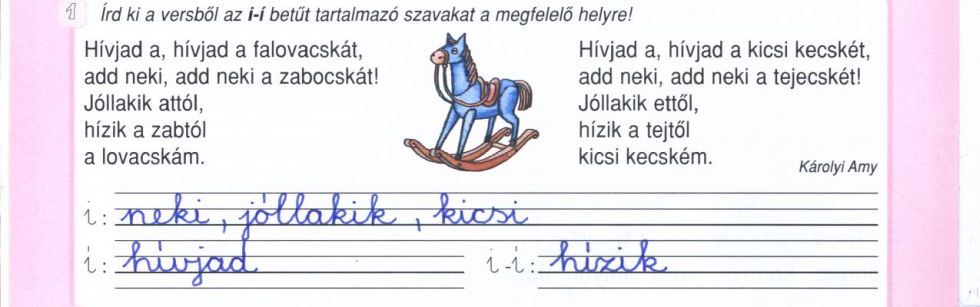 1 Írd ki a versből az i-í betűt tartalmazó szavakat a megfelelő helyre!
Hívjad a, hívjad a falovacskát,
add neki, add neki a zabocskát!
Jóllakik attól,
hízik a zabtól
a lovacskám.
Hívjad a, hívjad a kicsi kecskét,
add neki, add neki a tejecskét!
Jóllakik ettől,
hízik a tejtől
kicsi kecském.
Károlyi Amy
i: neki, jóllakik, kicsi
í: hívjad
i-í: hízik